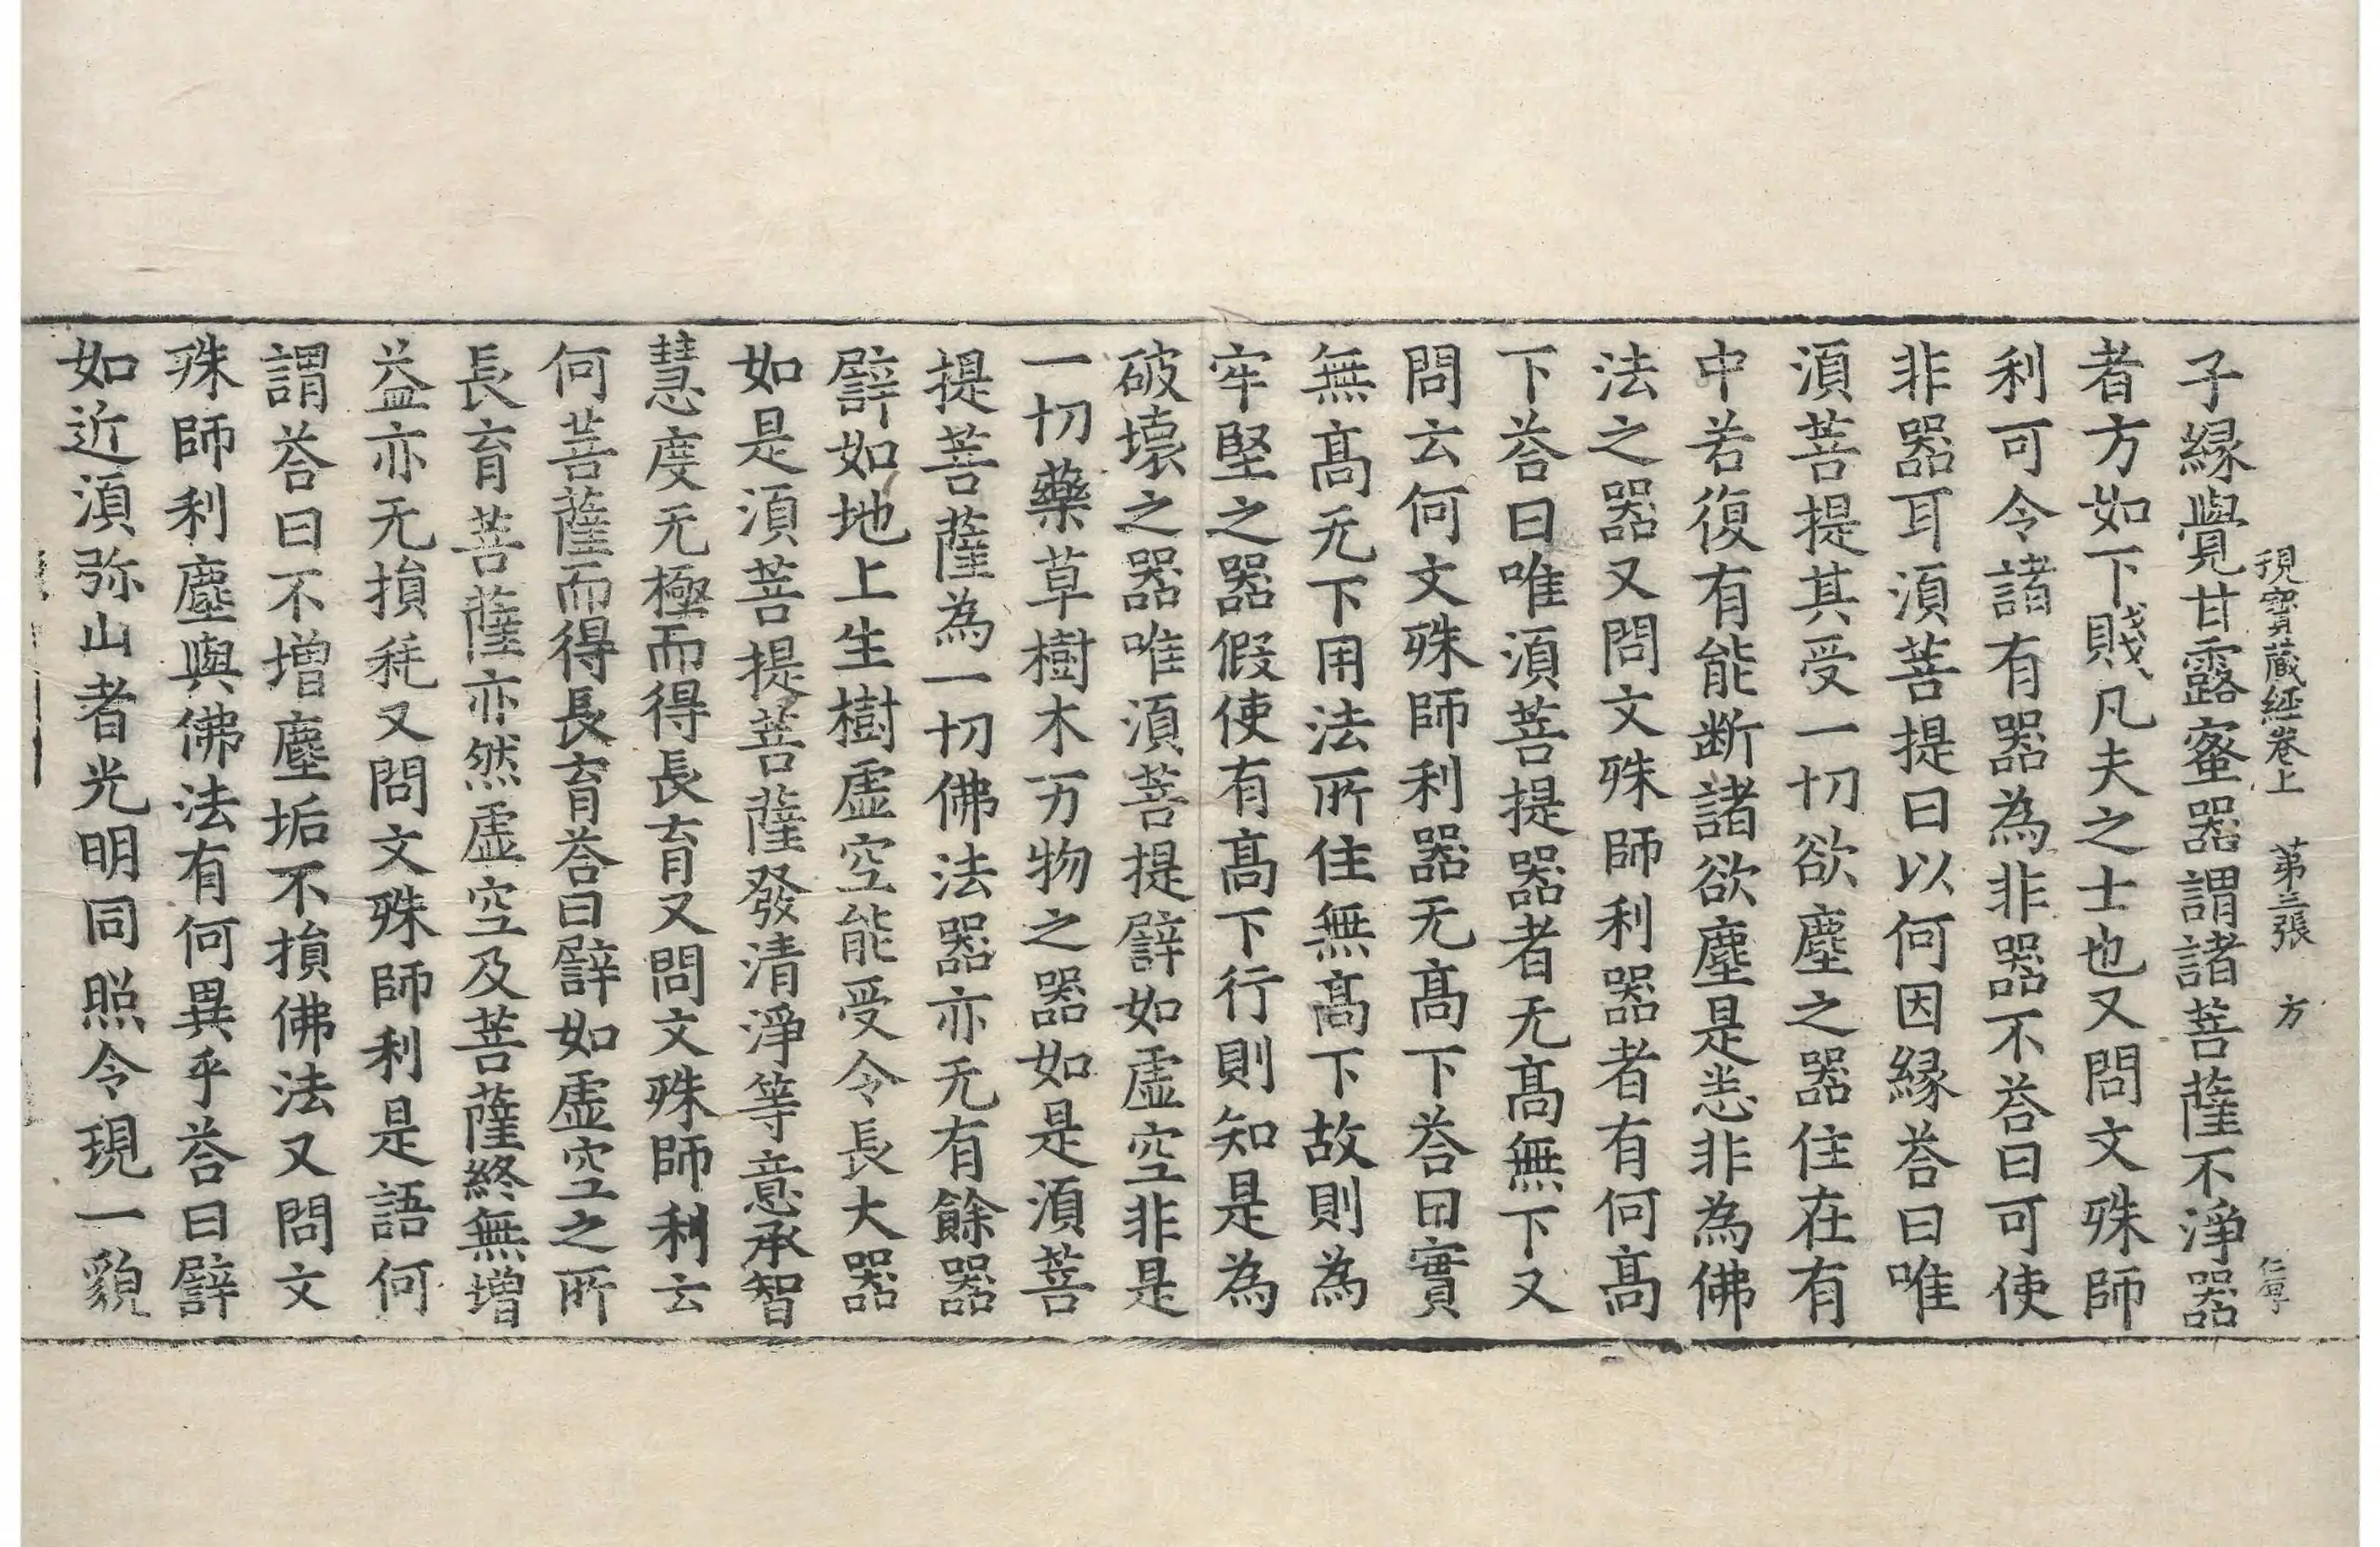 現寳蔵経卷上 第三張 方
子縁覺甘露蜜器謂諸菩薩不淨器
者方如下賤凡夫之士也又問文殊師
利可令諸有器為非器不荅曰可使
非器耳湏菩提曰以何因縁荅曰唯
湏菩提其受一切欲塵之器住在有
中若復有能断諸欲塵是悉非為佛
法之器又問文殊師利器者有何髙
下荅曰唯湏菩提器者无髙無下又
問云何文殊師利器无髙下荅曰實
無髙无下用法所住無髙下故則為
牢堅之器假使有髙下行則知是為
破壞之器唯湏菩提譬如虚空非是
一切藥草樹木万物之器如是湏菩
提菩薩為一切佛法器亦无有餘器
譬如地上生樹虚空能受令長大器
如是湏菩提菩薩發清淨等意承智
慧度无極而得長育又問文殊師利云
何菩薩而得長育荅曰譬如虚空之所
長育菩薩亦然虚空及菩薩終無増
益亦无損秏又問文殊師利是語何
謂荅曰不増塵垢不損佛法又問文
殊師利塵與佛法有何異乎荅曰譬
如近湏弥山者光明同照令現一貌